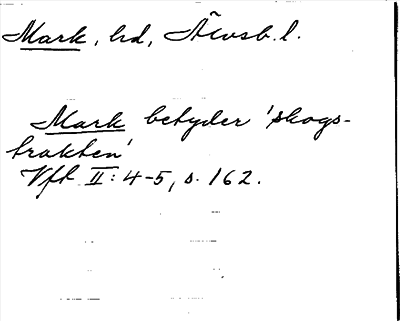 Mark, hd, Älvsb. l.
Mark betyder 'skogs-
trakten'
Vfk II: 4-5, s. 162.